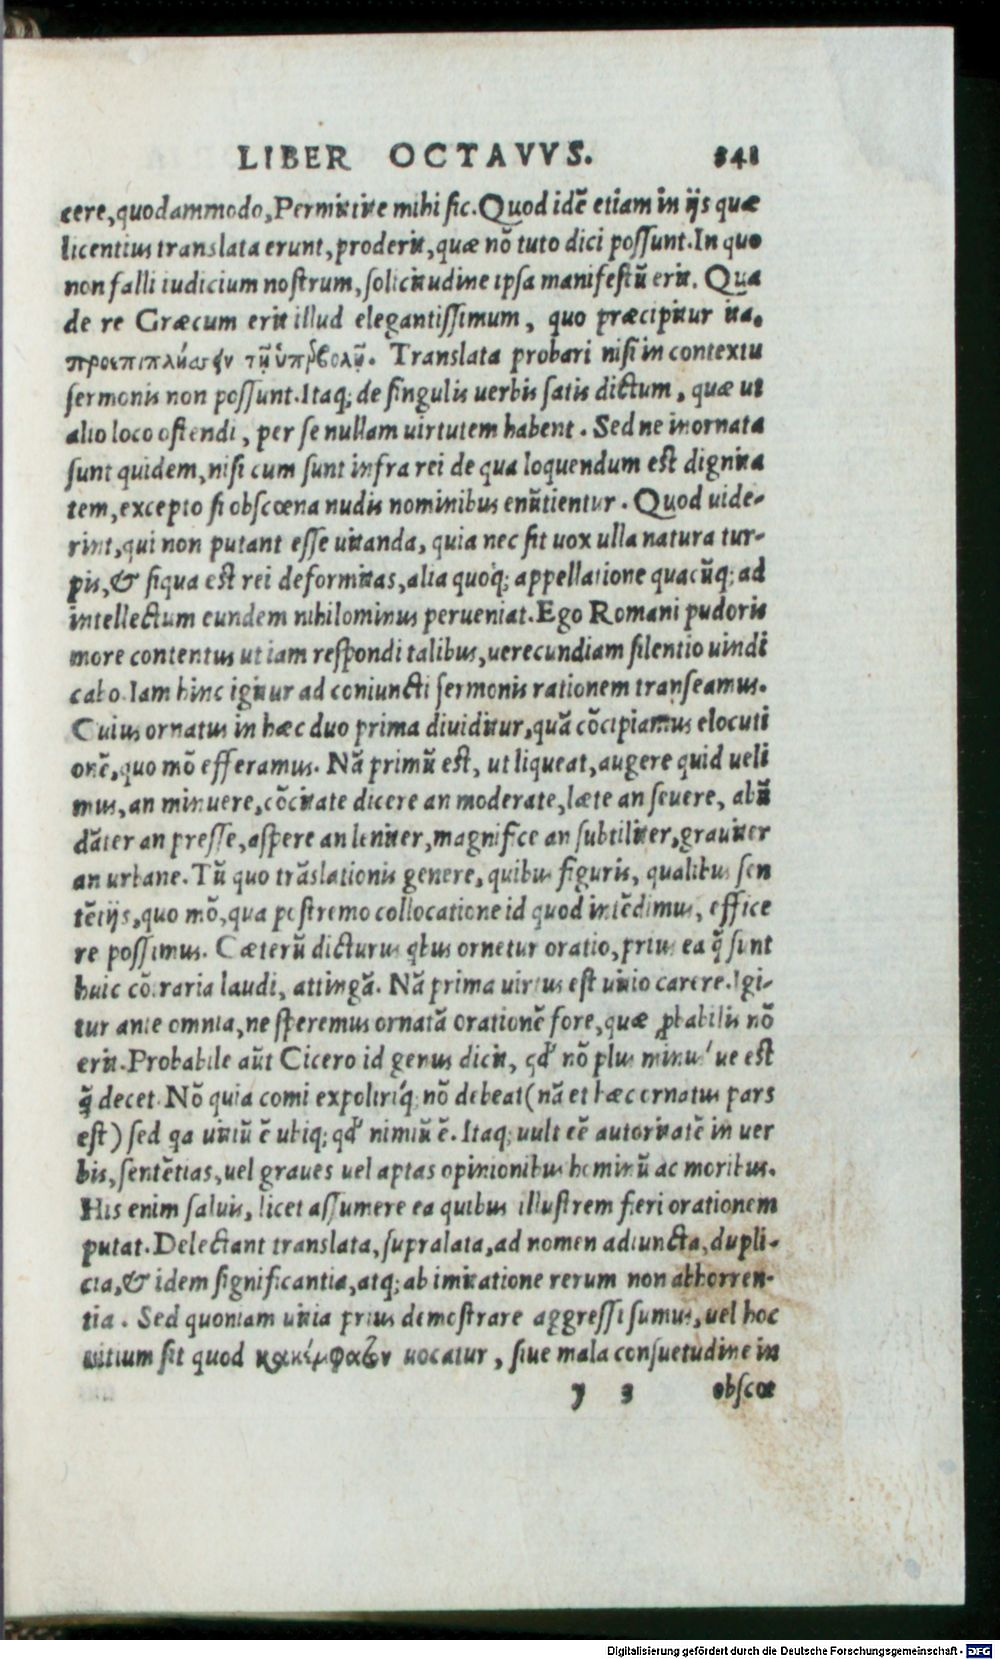 LIBER OCTAVVS. 341
cere, quodammodo, Permittite mihi sic. Quod idē etiam in ijs quæ
licentius translata erunt, proderit, quæ nō tuto dici possunt. In quo
non falli iudicium nostrum, solicitudine ipsa manifestū erit. Qua
de re Græcum erit illud elegantissimum, quo præcipitur ita.
Translata probari nisi in contextu
sermonis non possunt. Itaq; de singulis uerbis satis dictum, quæ ut
alio loco ostendi, per se nullam uirtutem habent. Sed ne inornata
sunt quidem, nisi cum sunt infra rei de qua loquendum est dignita
tem, excepto si obscœna nudis nominibus enūtientur. Quod uide-
rint, qui non putant esse uitanda, quia nec sit uox ulla natura tur-
pis, & siqua est rei deformitas, alia quoq; appellatione quacūq; ad
intellectum eundem nihilominus perueniat. Ego Romani pudoris
more contentus ut iam respondi talibus, uerecundiam silentio uindi
cabo. Iam hinc igitur ad coniuncti sermonis rationem transeamus.
Cuius ornatus in hæc duo prima diuiditur, quā cōcipiamus elocuti
onē, quo mō efferamus. Nā primū est, ut liqueat, augere quid ueli
mus, an minuere, cōcitate dicere an moderate, læte an seuere, abū
dāter an presse, aspere an leniter, magnifice an subtiliter, grauiter
an urbane. Tū quo trāslationis genere, quibus figuris, qualibus sen
tētijs, quo mō, qua postremo collocatione id quod intēdimus, effice
re possimus. Cæterū dicturus qbus ornetur oratio, prius ea q̄ sunt
huic cōtraria laudi, attingā. Nā prima uirtus est uitio carere. Igi-
tur ante omnia, ne speremus ornatā orationē fore, quæ ꝓbabilis nō
erit. Probabile aūt Cicero id genus dicit, qd' nō plus minus'ue est
q̄ decet. Nō quia comi expoliriq́; nō debeat (nā et hæc ornatus pars
est) sed qa uitiū ē ubiq; qd' nimiū ē. Itaq; uult eē autoritatē in uer
bis, sentētias, uel graues uel aptas opinionibus hominū ac moribus.
His enim saluis, licet assumere ea quibus illustrem fieri orationem
putat. Delectant translata, supralata, ad nomen adiuncta, dupli-
cia, & idem significantia, atq; ab imitatione rerum non abhorren-
tia. Sed quoniam uitia prius demostrare aggressi sumus, uel hoc
uitium sit quod κακέμφατον uocatur, siue mala consuetudine in
y 3 obscœ
Digitalisierung gefördert durch die Deutsche Forschungsgemeinschaft - DFG